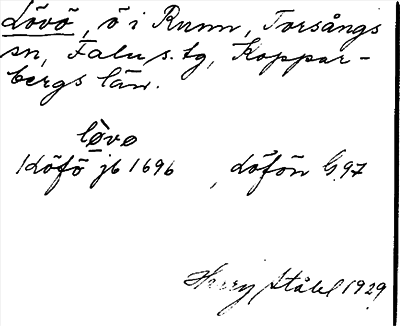 Lövö, ö i Runn, Torsångs
sn, Falu s. tg, Koppar-
bergs län.
lø̀vø
Löfö jb 1696, Löfön G. 97
Harry Ståhl 1929